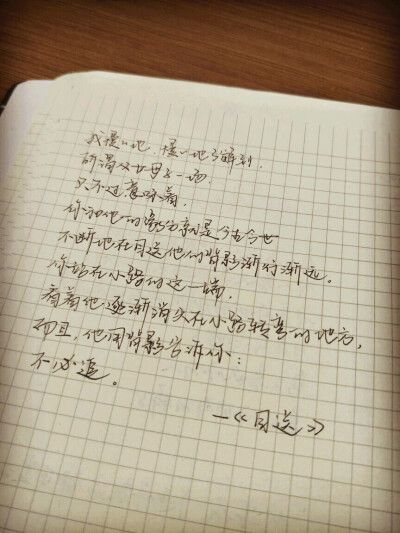 我慢慢地、慢慢地了解到,
所谓父女母子一场
只不过意味着,
你和他的缘分就是今生今世
不断地在目送他的背影渐行渐远。
你站在小路的这一端,
看着他逐渐消失在小路转弯的地方,
而且,他用背影告诉你:
不必追。
—《目送》